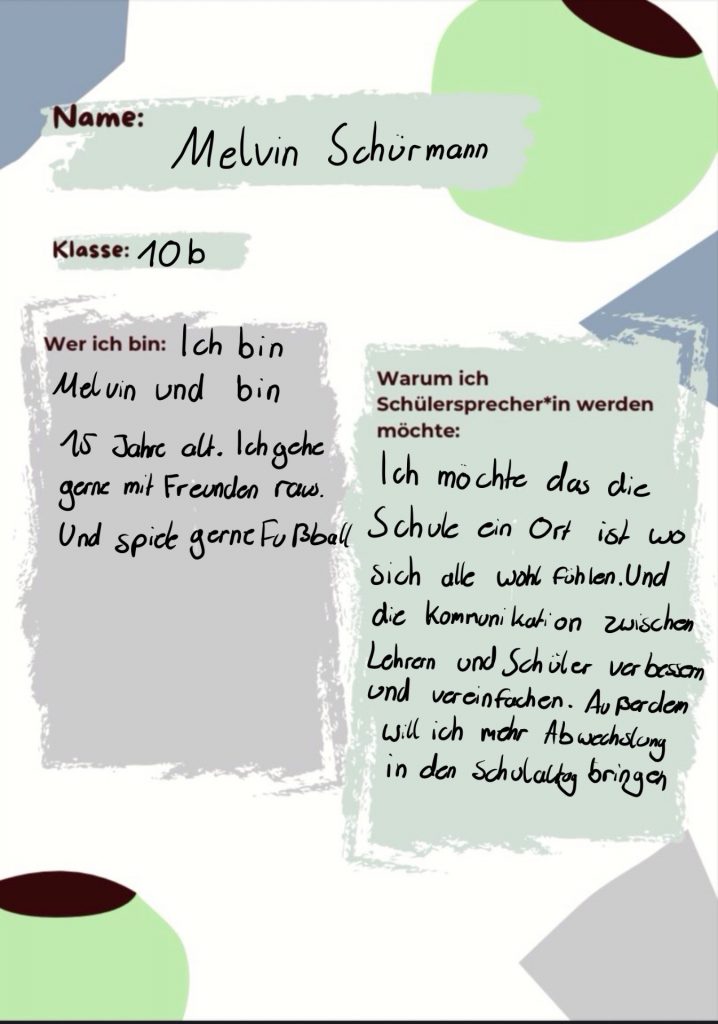 Name:
Melvin Schürmann
Klasse: 10b
Wer ich bin: Ich bin
Melvin und bin
15 Jahre alt. Ich gehe
gerne mit Freunden raus.
Und spiele gerne Fußball
Warum ich
Schülersprecher*in werden
möchte:
Ich möchte das die
Schule ein Ort ist wo
sich alle wohl fühlen. Und
die Kommunikation zwischen
Lehrern und Schüler verbessern
und vereinfachen. Außerdem
will ich mehr Abwechslung
in den Schulalltag bringen